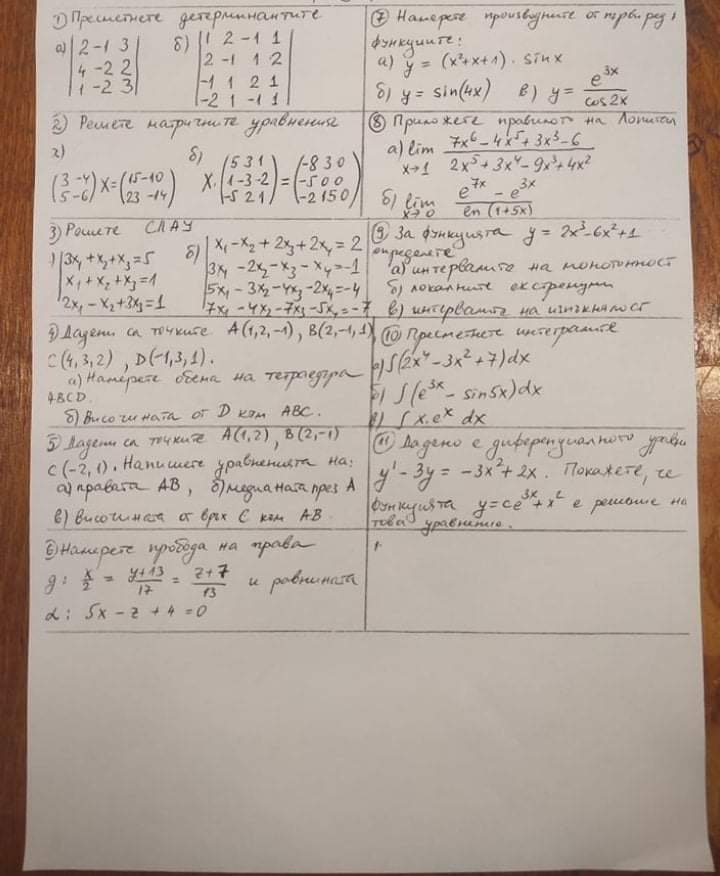 1) Пресметнете детерминантите
а) |2 -1 3| б) |1 2 -1 1|
|4 -2 2| |2 -1 1 2|
|1 -2 3| |-1 1 2 1|
|-2 1 -1 1|
2) Решете матричните уравнения
а) б)
(3 -4) X = (15 -10) X. (5 3 1) = (-8 3 0)
(5 -6) (23 -14) (1 -3 -2) (-5 0 0)
(-5 2 1) (-2 15 0)
3) Решете СЛАУ
|3x₁ + x₂ + x₃ = 5 б) |x₁ - x₂ + 2x₃ + 2x₄ = 2
|x₁ + x₂ + x₃ = 1 |3x₁ - 2x₂ - x₃ - x₄ = -1
|2x₁ - x₂ + 3x₃ = 1 |5x₁ - 3x₂ - 4x₃ - 2x₄ = -4
|7x₁ - 4x₂ - 7x₃ - 5x₄ = -7
4) Дадени са точките A(1,2,-1), B(2,-1,1)
C(4,3,2), D(-1,3,1).
а) Намерете обема на тетраедъра
ABCD.
б) Височината от D към ABC.
5) Дадени са точките A(1,2), B(2,-1)
C(-2,1). Напишете уравненията на:
а) правата AB, б) медианата през A
в) височината от връх C към AB
6) Намерете пробода на права
g: x/2 = (y+13)/17 = (z+7)/13 и равнината
α: 5x - z + 4 = 0
7) Намерете производните от първи ред
функциите:
а) y = (x²+x+1) . sinx
б) y = sin(4x) в) y = e^{3x}/cos2x
8) Приложете правилото на Лопитал
а) lim x→1 (7x⁶ - 4x⁵ + 3x³ - 6)/(2x⁵ + 3x⁴ - 9x³ + 4x²)
б) lim x→0 (e^{7x} - e^{3x})/(ln(1+5x))
9) За функцията y = 2x³ - 6x² + 1
определете
а) интервалите на монотонност
б) локалните екстремуми
в) интервалите на изпъкналост
10) Пресметнете интегралите
а) ∫(2x⁴ - 3x² + 7)dx
б) ∫(e^{3x} - sin5x)dx
в) ∫x.eˣ dx
11) Дадено е диференциалното уравн
y' - 3y = -3x² + 2x. Покажете, че
функцията y = ce^{3x} + x² е решение на
това уравнение.